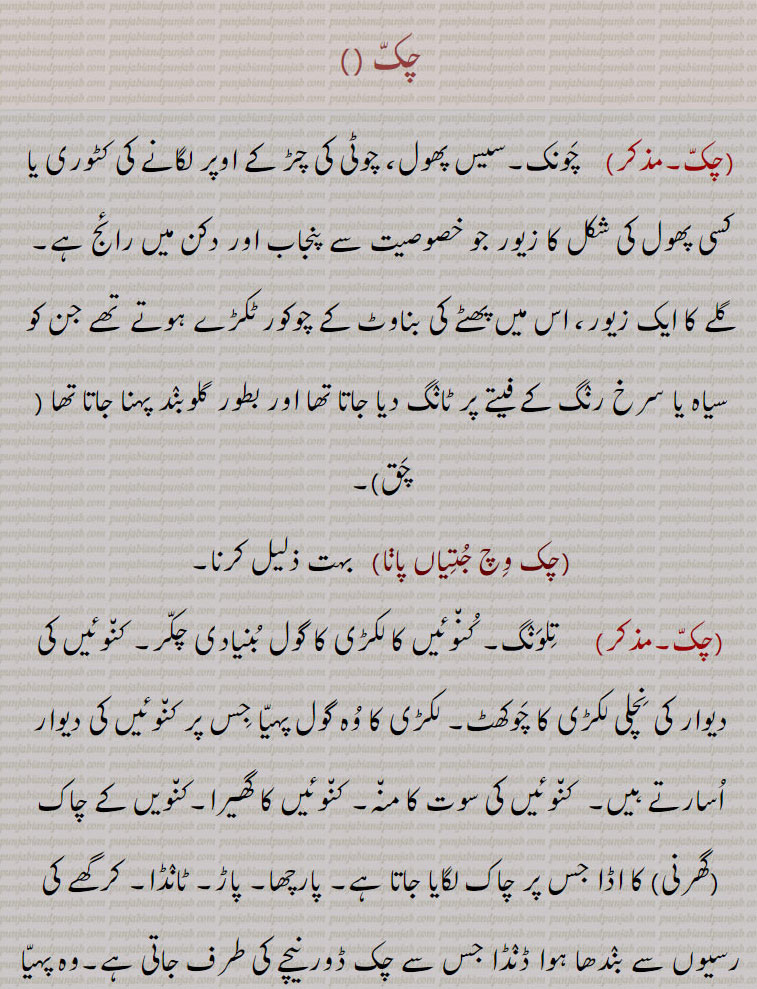 چکّ ()
(چکّ۔مذکر) چَونک۔سیس پھول، چوٹی کی چڑ کے اوپر لگانے کی کٹوری یا
کسی پھول کی شکل کا زیور جو خصوصیت سے پنجاب اور دکن میں رائج ہے۔
گلے کا ایک زیور، اس میں پھٹے کی بناوٹ کے چوکور ٹکڑے ہوتے تھے جن کو
سیاہ یا سرخ رنْگ کے فیتے پر ٹانْگ دیا جاتا تھا اور بطور گلوبنْد پہنا جاتا تھا (
چَق)۔
(چک وِچ جُتِیاں پانْا) بہت ذلیل کرنا۔
(چکّ۔مذکر) تِلوَنْگ۔ کُنّوئیں کا لکڑی کا گول بُنیادی چکّر۔ کنّوئیں کی
دیوار کی نِچلی لکڑی کا چَوکھٹ۔ لکڑی کا وُہ گول پہیّا جِس پر کنّوئیں کی دیوار
اُسارتے ہیں۔ کنّوئیں کی سوت کا منہ۔ کنّوئیں کا گھیرا۔کنّویں کے چاک
(گھرنی) کا اڈا جس پر چاک لگایا جاتا ہے۔ پارچھا۔ پاڑ۔ ٹانْڈا۔ کرگھے کی
رسیوں سے بنْدھا ہوا ڈنْڈا جس سے چک ڈور نیچے کی طرف جاتی ہے۔وہ پہیّا
punjabiandpunjab.com